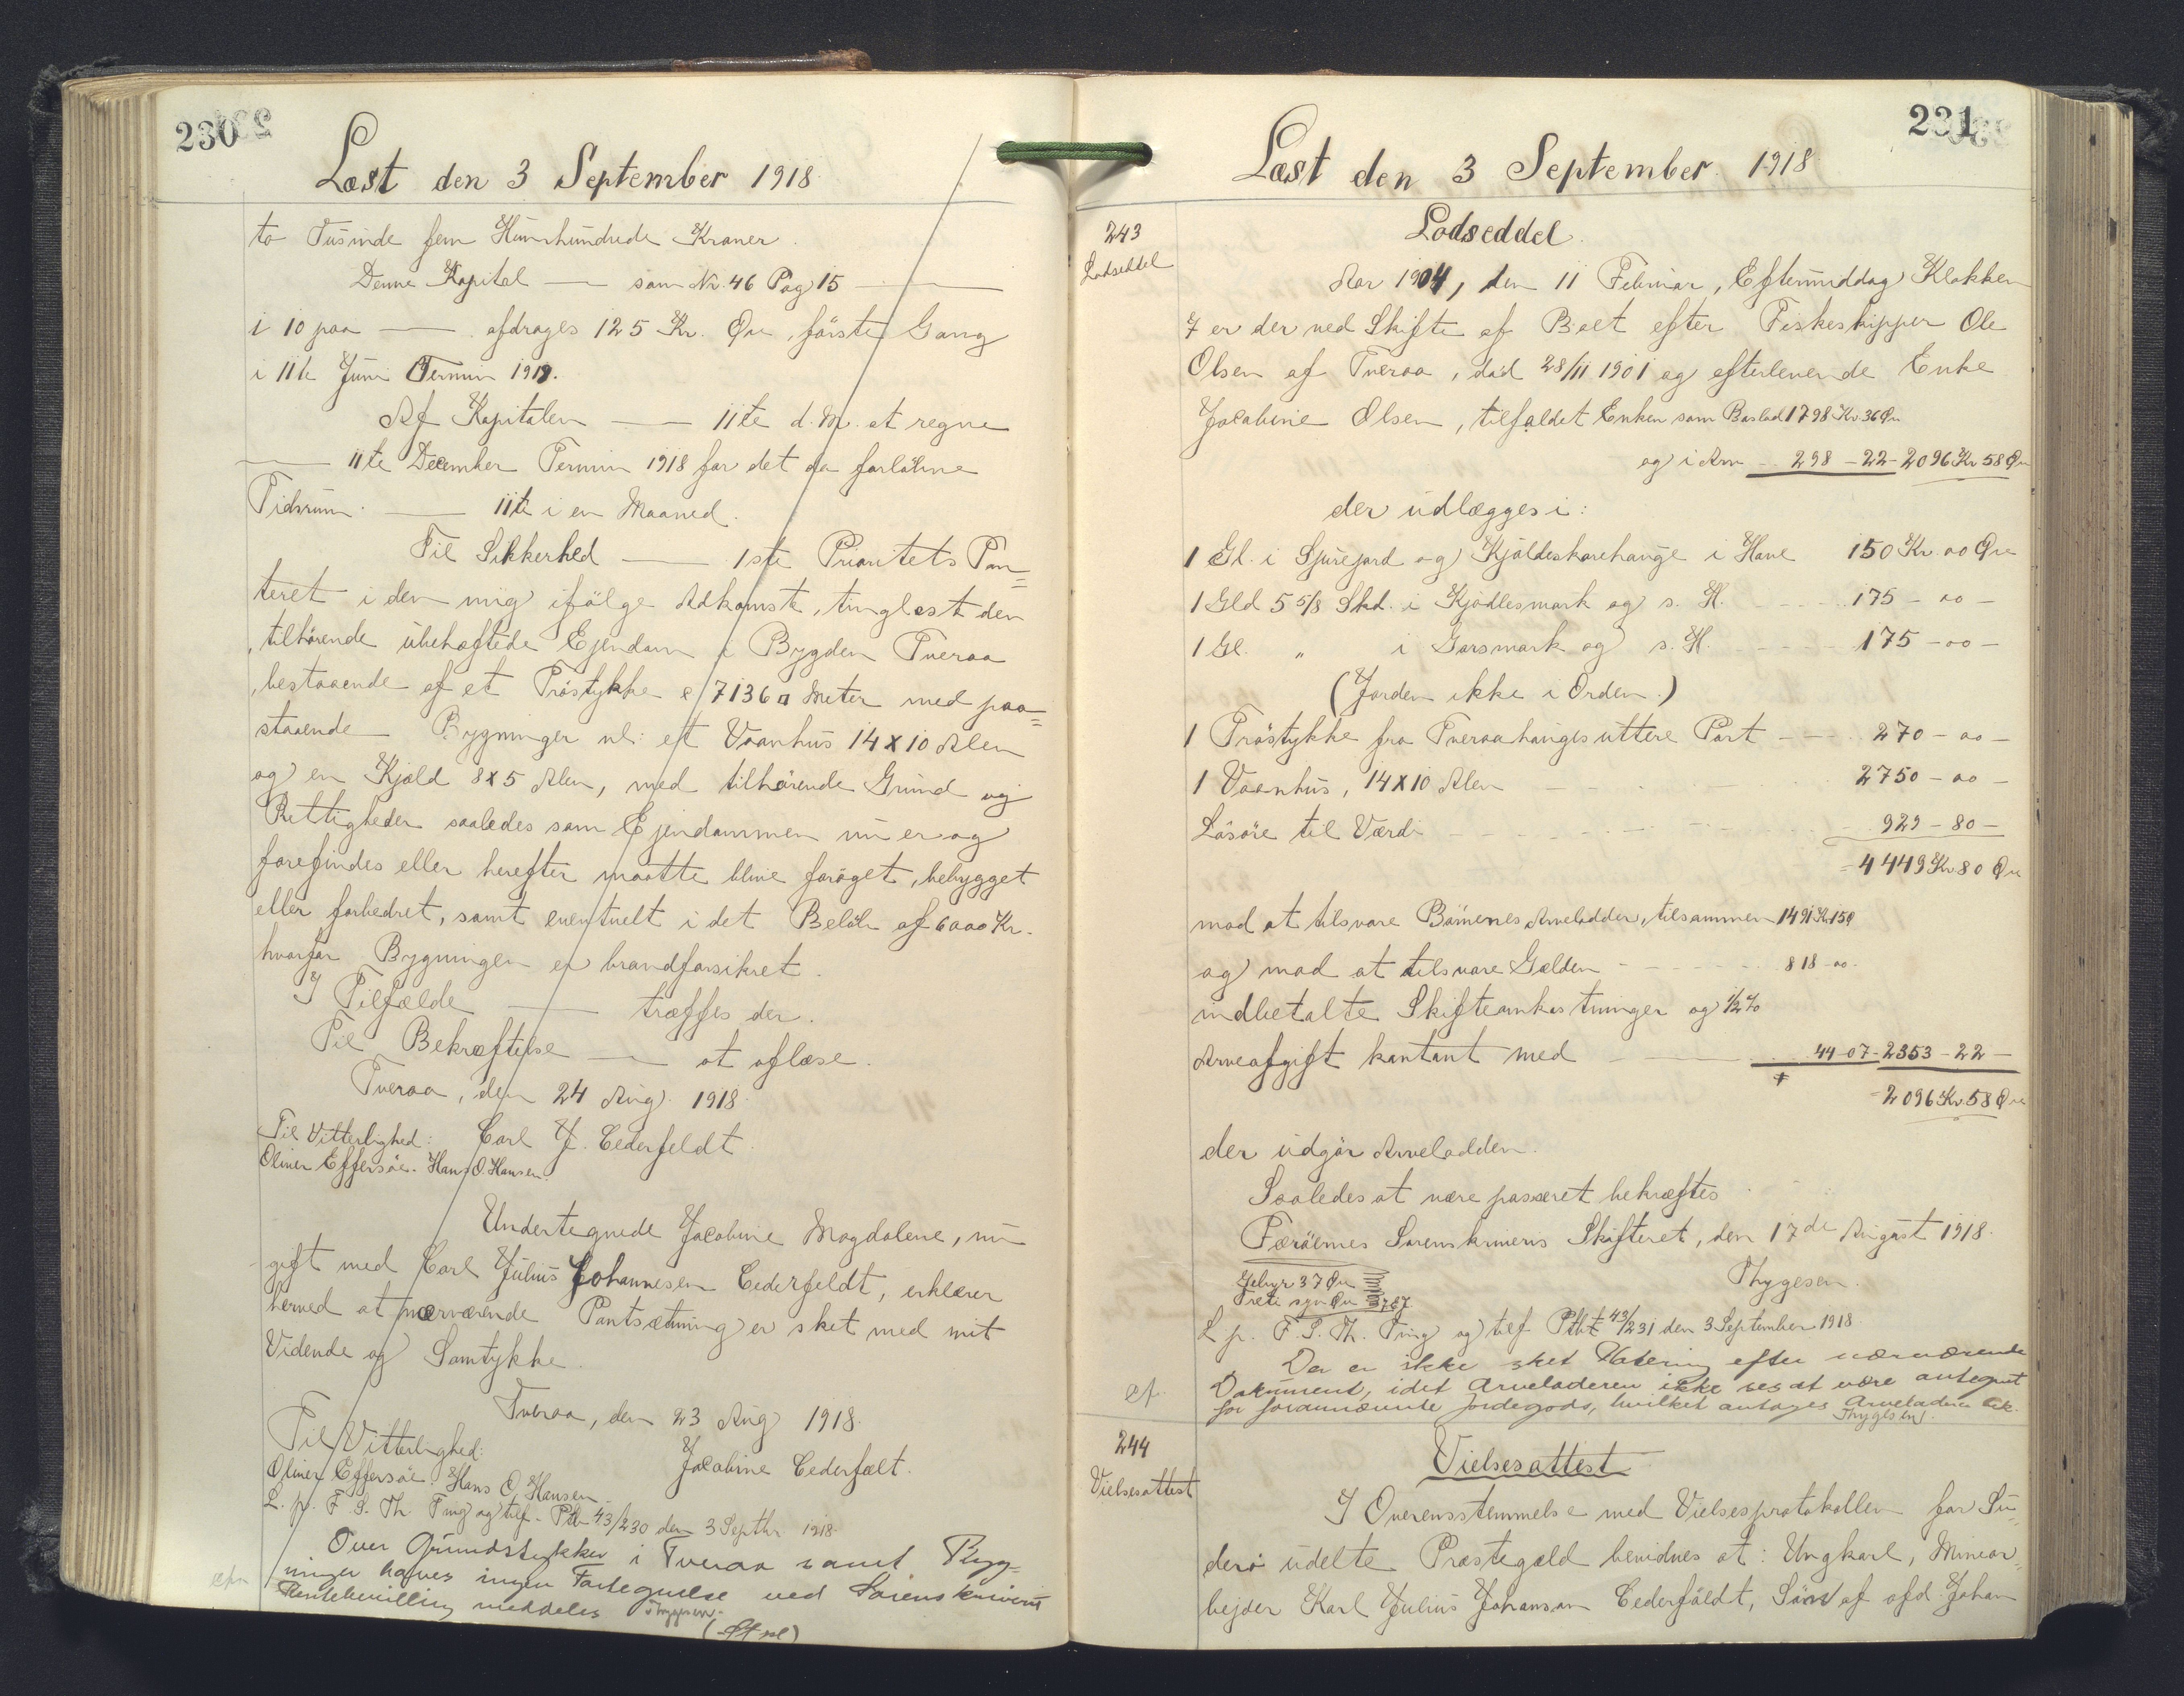 230
Læst den 3 September 1918
to Tusinde fem Hunhundrede Kroner.
Denne Kapital — som Nr. 46 Pag 15 —
i 10 paa — afdrages 125 Kr. Øre, første Gang
i 11te Juni Termin 1919.
Af Kapitalen — 11te d. M. at regne
— 11te December Termin 1918 for det da forløbne
Tidsrum — 11te i en Maaned.
Til Sikkerhed — 1ste Prioritets Pan=
teret i den mig ifølge Adkomst, tinglæst den
, tilhørende ubehæftede Ejendom i Bygden Tveraa
, bestaaende af et Trøstykke a 7136 □ Meter med paa=
staaende Bygninger nl: et Vaanhus 14 x 10 Alen
og en Kjald 8 x 5 Alen, med tilhørende Grund og
Rettigheder saaledes som Ejendommen nu er og
forefindes eller herefter maatte blive forøget, bebygget
eller forbedret, samt eventuelt i det Beløb af 6000 Kr.
hvorfor Bygningen er brandforsikret.
I Tilfælde — træffes der.
Til Bekræftelse — at aflæse.
Tveraa, den 24 Aug. 1918
Til Vitterlighed: Carl J. Cederfeldt.
Oliver Effersøe. Hans O. Hansen.
Undertegnede Jacobine Magdalene, nu
gift med Carl Julius Johannesen Cederfeldt, erklærer
herved at nærværende Pantsætning er sket med mit
Vidende og Samtykke.
Tveraa, den 23 Aug 1918.
Til Vitterlighed: Jacobine Cederfælt.
Oliver Effersøe. Hans O. Hansen.
L. p. F. S. Th. Ting og tilf. Ptb 43/230 den 3 Septbr 1918
Over Grundstykker i Tveraa samt Byg=
ninger haves ingen Fortegnelse ved Sorenskriveriet
meddeles Thygesen.
231
Læst den 3 September 1918
243
Lodseddel
Lodseddel.
Aar 1904, den 11 Februar, Eftermiddag Klokken
7 er der ved Skifte af Boet efter Fiskeskipper Ole
Olsen af Tveraa, død 28/11 1901 og efterlevende Enke
Jacobine Olsen, tilfaldet Enken som Boslod 1798 Kr. 36 Øre
og i Arv - 298 - 22 - 2096 Kr 58 Øre
der udlægges i:
1 Gl. i Sjurejord og Kjøldeskorehauge i Have 150 Kr. 00 Øre
1 Gld 5 5/8 Skd. i Kjødlesmark og s. H. - - - - 175 - 00 -
1 Gl. " i Garsmark og s. H. - - - - 175 - 00 -
(Jorden ikke i Orden.)
1 Trøstykke fra Tveraahauges uttere Part - - - 270 - 00 -
1 Vaanhus, 14 x 10 Alen - - - 2750 - 00 -
Løsøre til Værdi - - - - 929 - 80 -
= 4449 Kr 80 Øre
mod at tilsvare Børnenes Arvelodder, tilsammen 1491 Kr. 15 Ø
og mod at tilsvare Gælden - - - - - 818 - 00 -
indbetalte Skifteomkostninger og 1/2 %
Arveafgift kontant med - 44 - 07 - 2353 - 22 -
2096 Kr. 58 Øre
der udgør Arvelodden.
Saaledes at være passeret bekræftes
Færøernes Sorenskriveris Skifteret, den 17de August 1918.
Gebyr 37 Øre Thygesen.
Treti syv Øre
L p. F. S. Th. Ting og tilf Ptbt 43/231 den 3 September 1918.
Der er ikke sket Notering efter nærværende
Dokument, idet Arveladeren ikke ses at være antegnet
for forannævnte Jordegods, hvilket antages Arveladeren
Thygesen.
244
Vielsesattest
Vielsesattest
I Overensstemmelse med Vielsesprotokollen for Su=
derø udelte Præstegæld bevidnes at: Ungkarl, Minear=
bejder Karl Julius Johanson Cederføldt, Søn af afd Johan